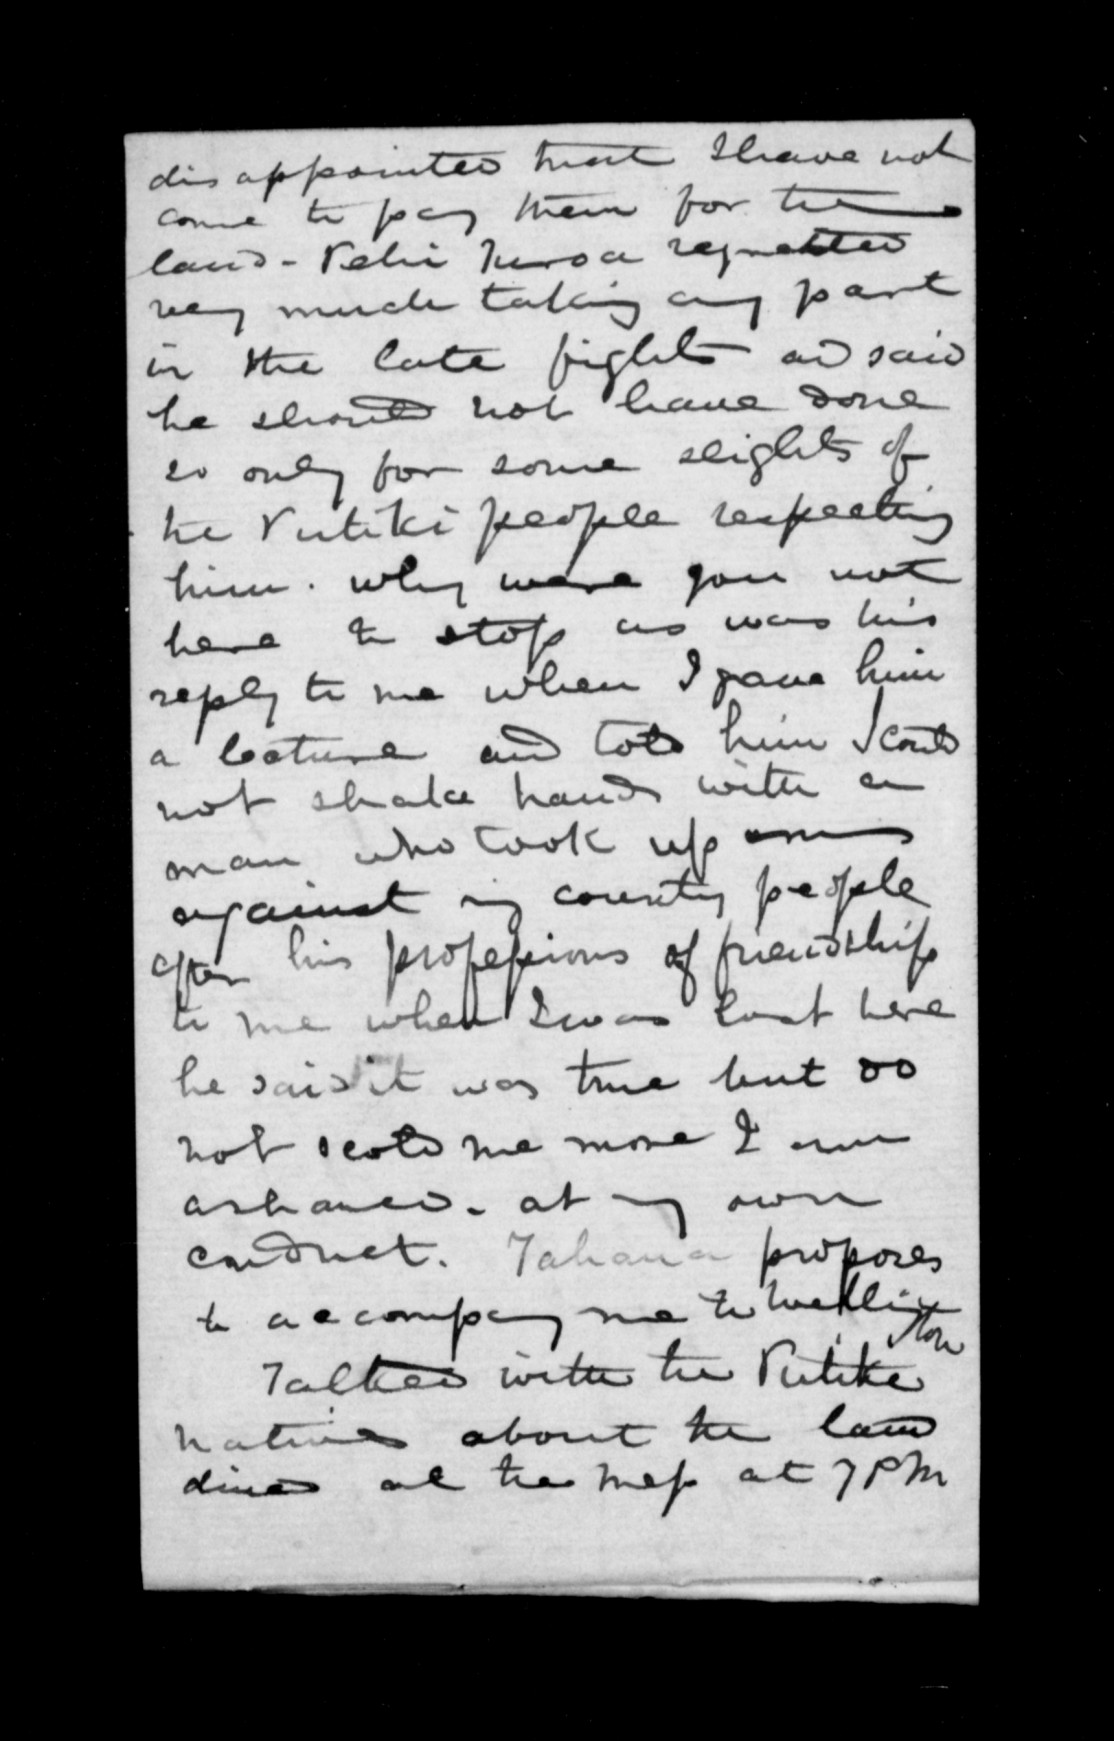 disappointed that I have not
come to pay them for the
land - Pehi Turoa regretted
very much taking any part
in the late fights and said
he should not have done
so only for some slights of
the Putiki people respecting
him. Why were you not
here to stop us was his
reply to me when I gave him
a lecture and told him I could
not shake hands with a
man who took up arms
against my country people
after his professions of friendship
to me when I was last here
he said it was true but do
not scold me more I am
ashamed - at my own
conduct. Tahana proposes
to accompany me to Welling
ton
Talked with the Putiki
natives about the land
dined at the mess at 7 PM